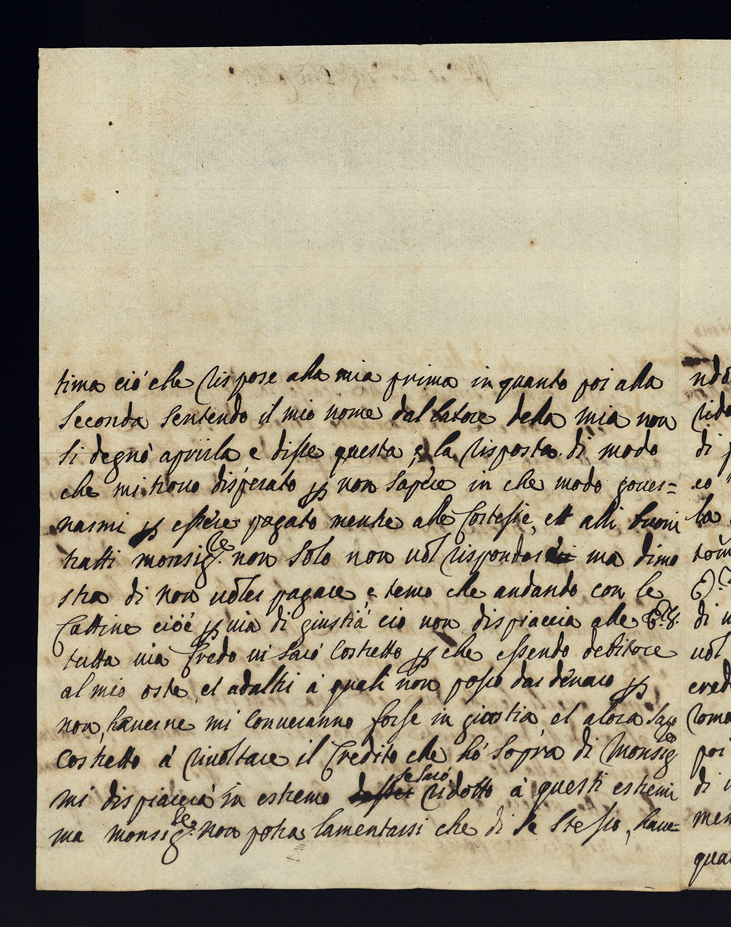 tima ciò che rispose alla mia prima in quanto poi alla
seconda sentendo il mio nome dal latore della mia non
si degnò aprirla e disse questa è la risposta di modo
che mi trovo disperato per non sapere in che modo gover=
narmi per essere pagato mentre alle cortesie, et alli buoni
tratti monsig.re non solo non vol rispondere ma dimo
stra di non voler pagare e temo che andando con le
cattive cioè per via di giustia ciò non dispiaccia alle
tutta via credo vi sarò costretto per che essendo debitore
al mio oste, et ad altri à quali non posso dar denaro per
non haverne mi converanno forse in giustia et alora sarò
costretto à rivoltare il credito che hò sopra di Monsig.re
mi dispiacerà in estremo se sarò ridotto à questi estremi
ma monsig.re non potrà lamentarsi che di se stesso, have=
ndo
di
eo
la
di
vol
cred
poi
di
men
qua